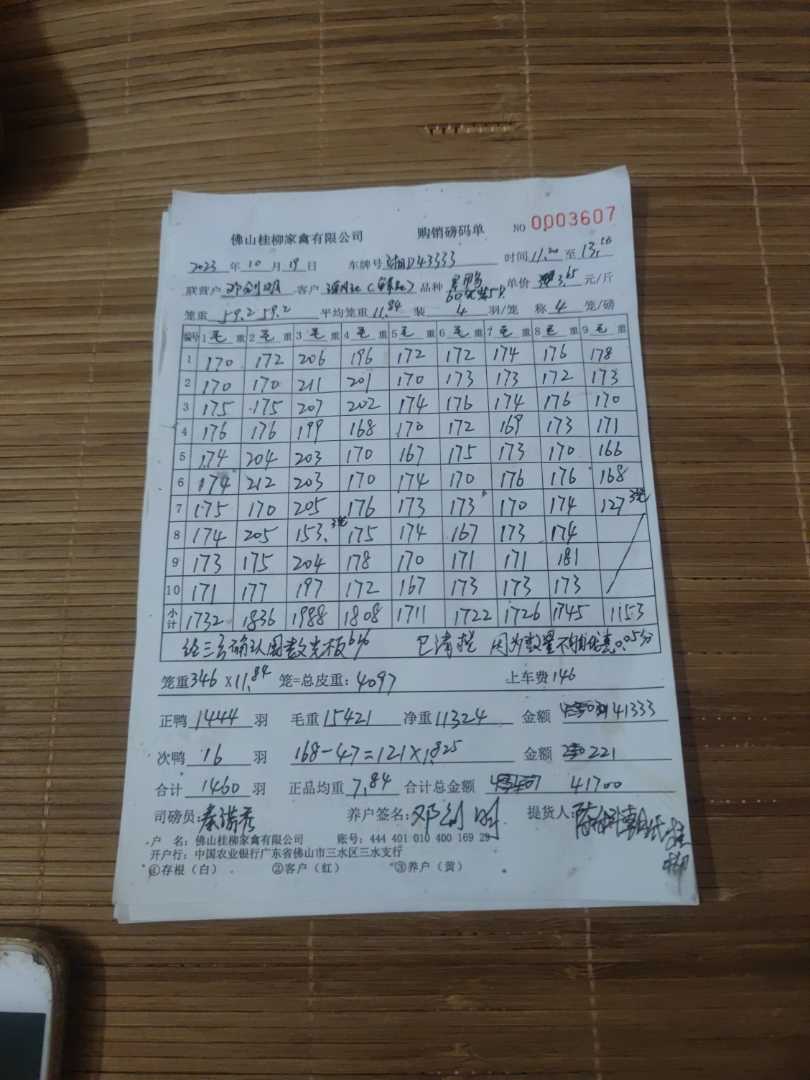 佛山桂柳家禽有限公司 购销磅码单 NO 0003607
2023 年 10 月 19 日 车牌号 D43333 时间 11.20 至
联营户 邓创明 客户 品种 单价 3.65 元/斤
笼重 59.2 59.2 平均笼重 11.84 装 4 羽/笼 称 4 笼/磅
编号 1 毛 重 2 毛 重 3 毛 重 4 毛 重 5 毛 重 6 毛 重 7 毛 重 8 毛 重 9 毛 重
1 170 172 206 196 172 172 174 176 178
2 170 170 211 201 170 173 173 172 173
3 175 175 207 202 174 176 174 176 170
4 176 176 199 168 170 172 169 173 171
5 174 204 203 170 167 175 173 170 166
6 174 212 203 170 174 170 176 176 168
7 175 170 205 176 173 173 170 174 127 3笼
8 174 205 153 3笼 175 174 167 173 174
9 173 175 204 178 170 171 171 181
10 171 177 197 172 167 173 173 173
小计 1732 1836 1988 1808 1711 1722 1726 1745 1153
笼重 346 × 11.84 笼=总皮重: 4097 上车费 146
正鸭 1444 羽 毛重 15421 净重 11324 金额 41333
次鸭 16 羽 168-47=121×1.825 金额 221
合计 1460 羽 正品均重 7.84 合计总金额 41700
司磅员: 养户签名: 邓创明 提货人:
户 名: 佛山桂柳家禽有限公司 账号: 444 401 010 400 169 29
开户行: 中国农业银行广东省佛山市三水区三水支行
①存根(白) ②客户(红) ③养户(黄)